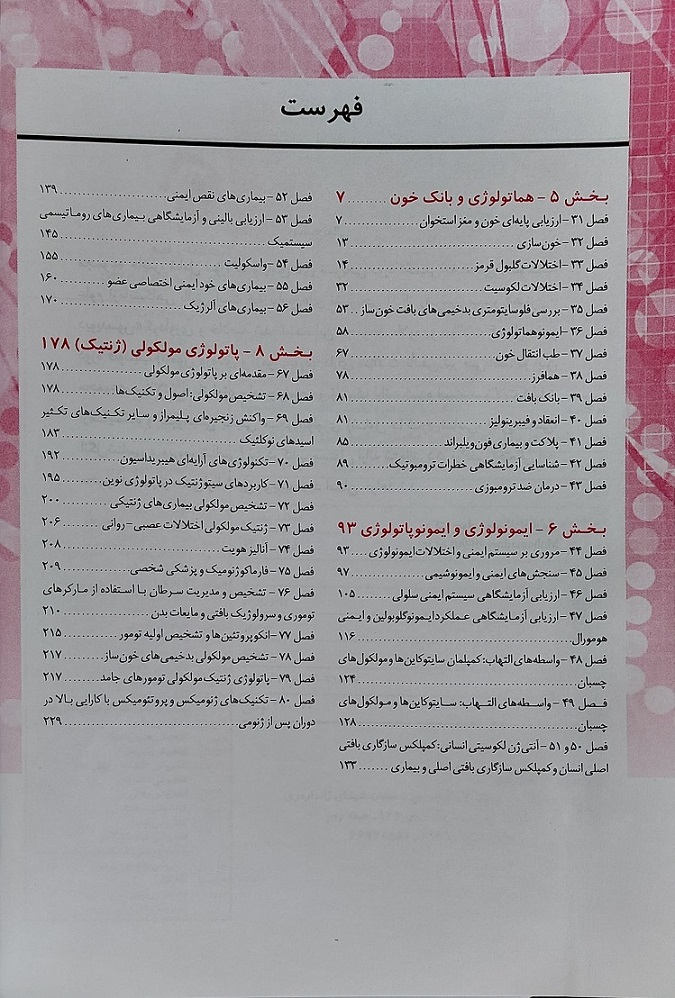 فهرست
بـخـش ۵ – هماتولوژی و بانک خون ......... ۷
فصل ۳۱ – ارزیابی پایه‌ای خون و مغز استخوان ......... ۷
فصل ۳۲ – خون‌سازی ......... ۱۳
فصل ۳۳ – اختلالات گلبول قرمز ......... ۱۴
فصل ۳۴ – اختلالات لکوسیت ......... ۳۲
فصل ۳۵ – بررسی فلوسایتومتری بدخیمی‌های بافت خون‌ساز ......... ۵۳
فصل ۳۶ – ایمونوهماتولوژی ......... ۵۸
فصل ۳۷ – طب انتقال خون ......... ۶۷
فصل ۳۸ – همافرز ......... ۷۸
فصل ۳۹ – بانک بافت ......... ۸۱
فصل ۴۰ – انعقاد و فیبرینولیز ......... ۸۱
فصل ۴۱ – پلاکت و بیماری فون‌ویلبراند ......... ۸۵
فصل ۴۲ – شناسایی آزمایشگاهی خطرات ترومبوتیک ......... ۸۹
فصل ۴۳ – درمان ضد ترومبوزی ......... ۹۰
بـخـش ۶ – ایمونولوژی و ایمونوپاتولوژی ۹۳
فصل ۴۴ – مروری بر سیستم ایمنی و اختلالات ایمونولوژی ......... ۹۳
فصل ۴۵ – سنجش‌های ایمنی و ایمونوشیمی ......... ۹۷
فصل ۴۶ – ارزیابی آزمایشگاهی سیستم ایمنی سلولی ......... ۱۰۵
فصل ۴۷ – ارزیابی آزمـایشگاهی عملکرد ایمونوگلوبولین و ایـمنی
هومورال ......... ۱۱۶
فصل ۴۸ – واسطه‌های التهاب: کمپلمان سایتوکاین‌ها و مولکول‌های
چسبان ......... ۱۲۴
فـصـل ۴۹ – واسـطه‌های التـهـاب: سـایتوکاین‌ها و مـولکول‌های
چسبان ......... ۱۲۸
فصل ۵۰ و ۵۱ – آنتی‌ژن لکوسیتی انسانی: کمپلکس سازگاری بافتی
اصلی انسان و کمپلکس سازگاری بافتی اصلی و بیماری ....... ۱۳۳
فصل ۵۲ – بیماری‌های نقص ایمنی ......... ۱۳۹
فصل ۵۳ – ارزیابی بالینی و آزمایشگاهی بیماری‌های رومـاتیسمی
سیستمیک ......... ۱۴۵
فصل ۵۴ – واسکولیت ......... ۱۵۵
فصل ۵۵ – بیماری‌های خود ایمنی اختصاصی عضو ......... ۱۶۰
فصل ۵۶ – بیماری‌های آلرژیک ......... ۱۷۰
بـخـش ۸ – پاتولوژی مولکولی (ژنتیک) ۱۷۸
فصل ۶۷ – مقدمه‌ای بر پاتولوژی مولکولی ......... ۱۷۸
فصل ۶۸ – تشخیص مولکولی: اصول و تکنیک‌ها ......... ۱۷۸
فصل ۶۹ – واکنش زنجیره‌ای پلیمراز و سـایر تکـنیک‌های تکـثیر
اسیدهای نوکلئیک ......... ۱۸۳
فصل ۷۰ – تکنولوژی‌های آرایه‌ای هیبریداسیون ......... ۱۹۲
فصل ۷۱ – کاربردهای سیتوژنتیک در پاتولوژی نوین ......... ۱۹۵
فصل ۷۲ – تشخیص مولکولی بیماری‌های ژنتیکی ......... ۲۰۰
فصل ۷۳ – ژنتیک مولکولی اختلالات عصبی – روانی ......... ۲۰۶
فصل ۷۴ – آنالیز هویت ......... ۲۰۸
فصل ۷۵ – فارماکوژنومیک و پزشکی شخصی ......... ۲۰۹
فصل ۷۶ – تشخیص و مدیریت سرطان بـا اسـتفاده از مـارکرهای
توموری و سرولوژیک بافتی و مایعات بدن ......... ۲۱۰
فصل ۷۷ – انکوپروتئین‌ها و تشخیص اولیه تومور ......... ۲۱۵
فصل ۷۸ – تشخیص مولکولی بدخیمی‌های خون‌ساز ......... ۲۱۷
فصل ۷۹ – پاتولوژی ژنتیک مولکولی تومورهای جامد ......... ۲۱۷
فصل ۸۰ – تکنیک‌های ژنومیکس و پروتئومیکس با کارایی بـالا در
دوران پس از ژنومی ......... ۲۲۹